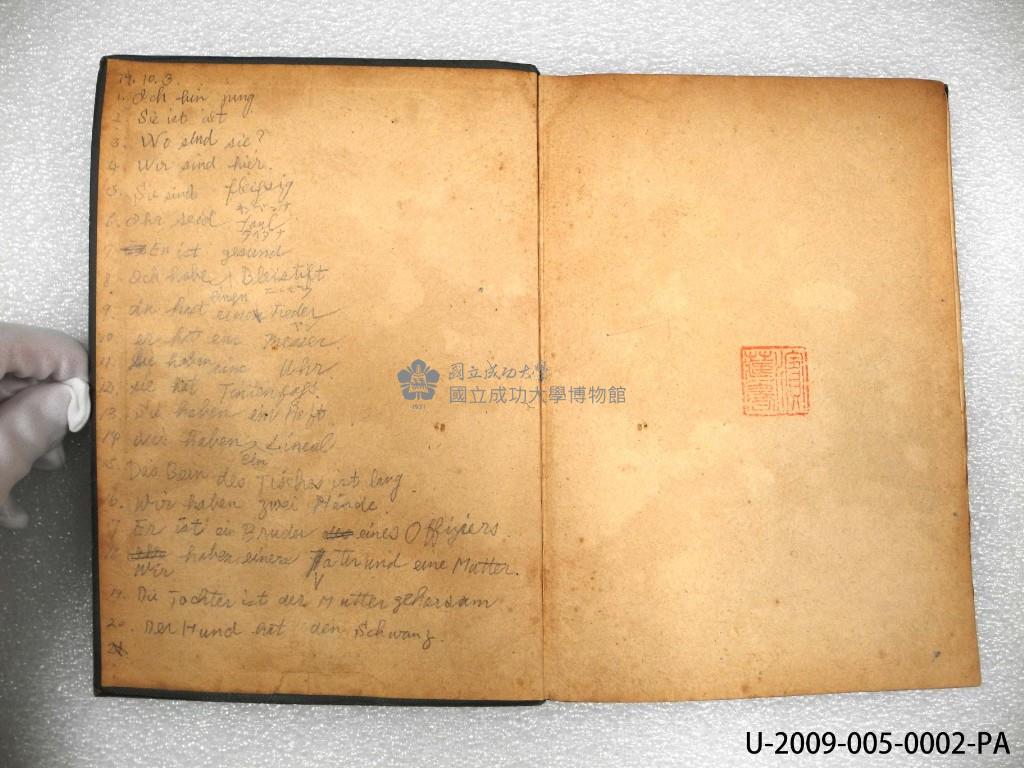 19.10.3.
1. Ich bin jung
2. Sie ist alt
3. Wo sind sie?
4. Wir sind hier.
5. Sie sind fleissig
6. Ihr seid faul
7. Er ist gesund
8. Ich habe Bleistift
9. du hast einen Feder
10. er hat ein Messer
11. Sie haben eine Uhr
12. sie hat Tintenfass.
13. Sie haben ein Heft.
14. wir haben Lineal
ein
15. Das Bein des Tisches ist lang
16. Wir haben zwei Hände.
17. Er ist ein Bruder eines Offiziers.
18. Wir haben einen Vater und eine Mutter.
19. Die Tochter ist der Mutter gehorsam
20. Der Hund hat den Schwanz.
21
國立成功大學
國立成功大學博物館
1931
U-2009-005-0002-PA